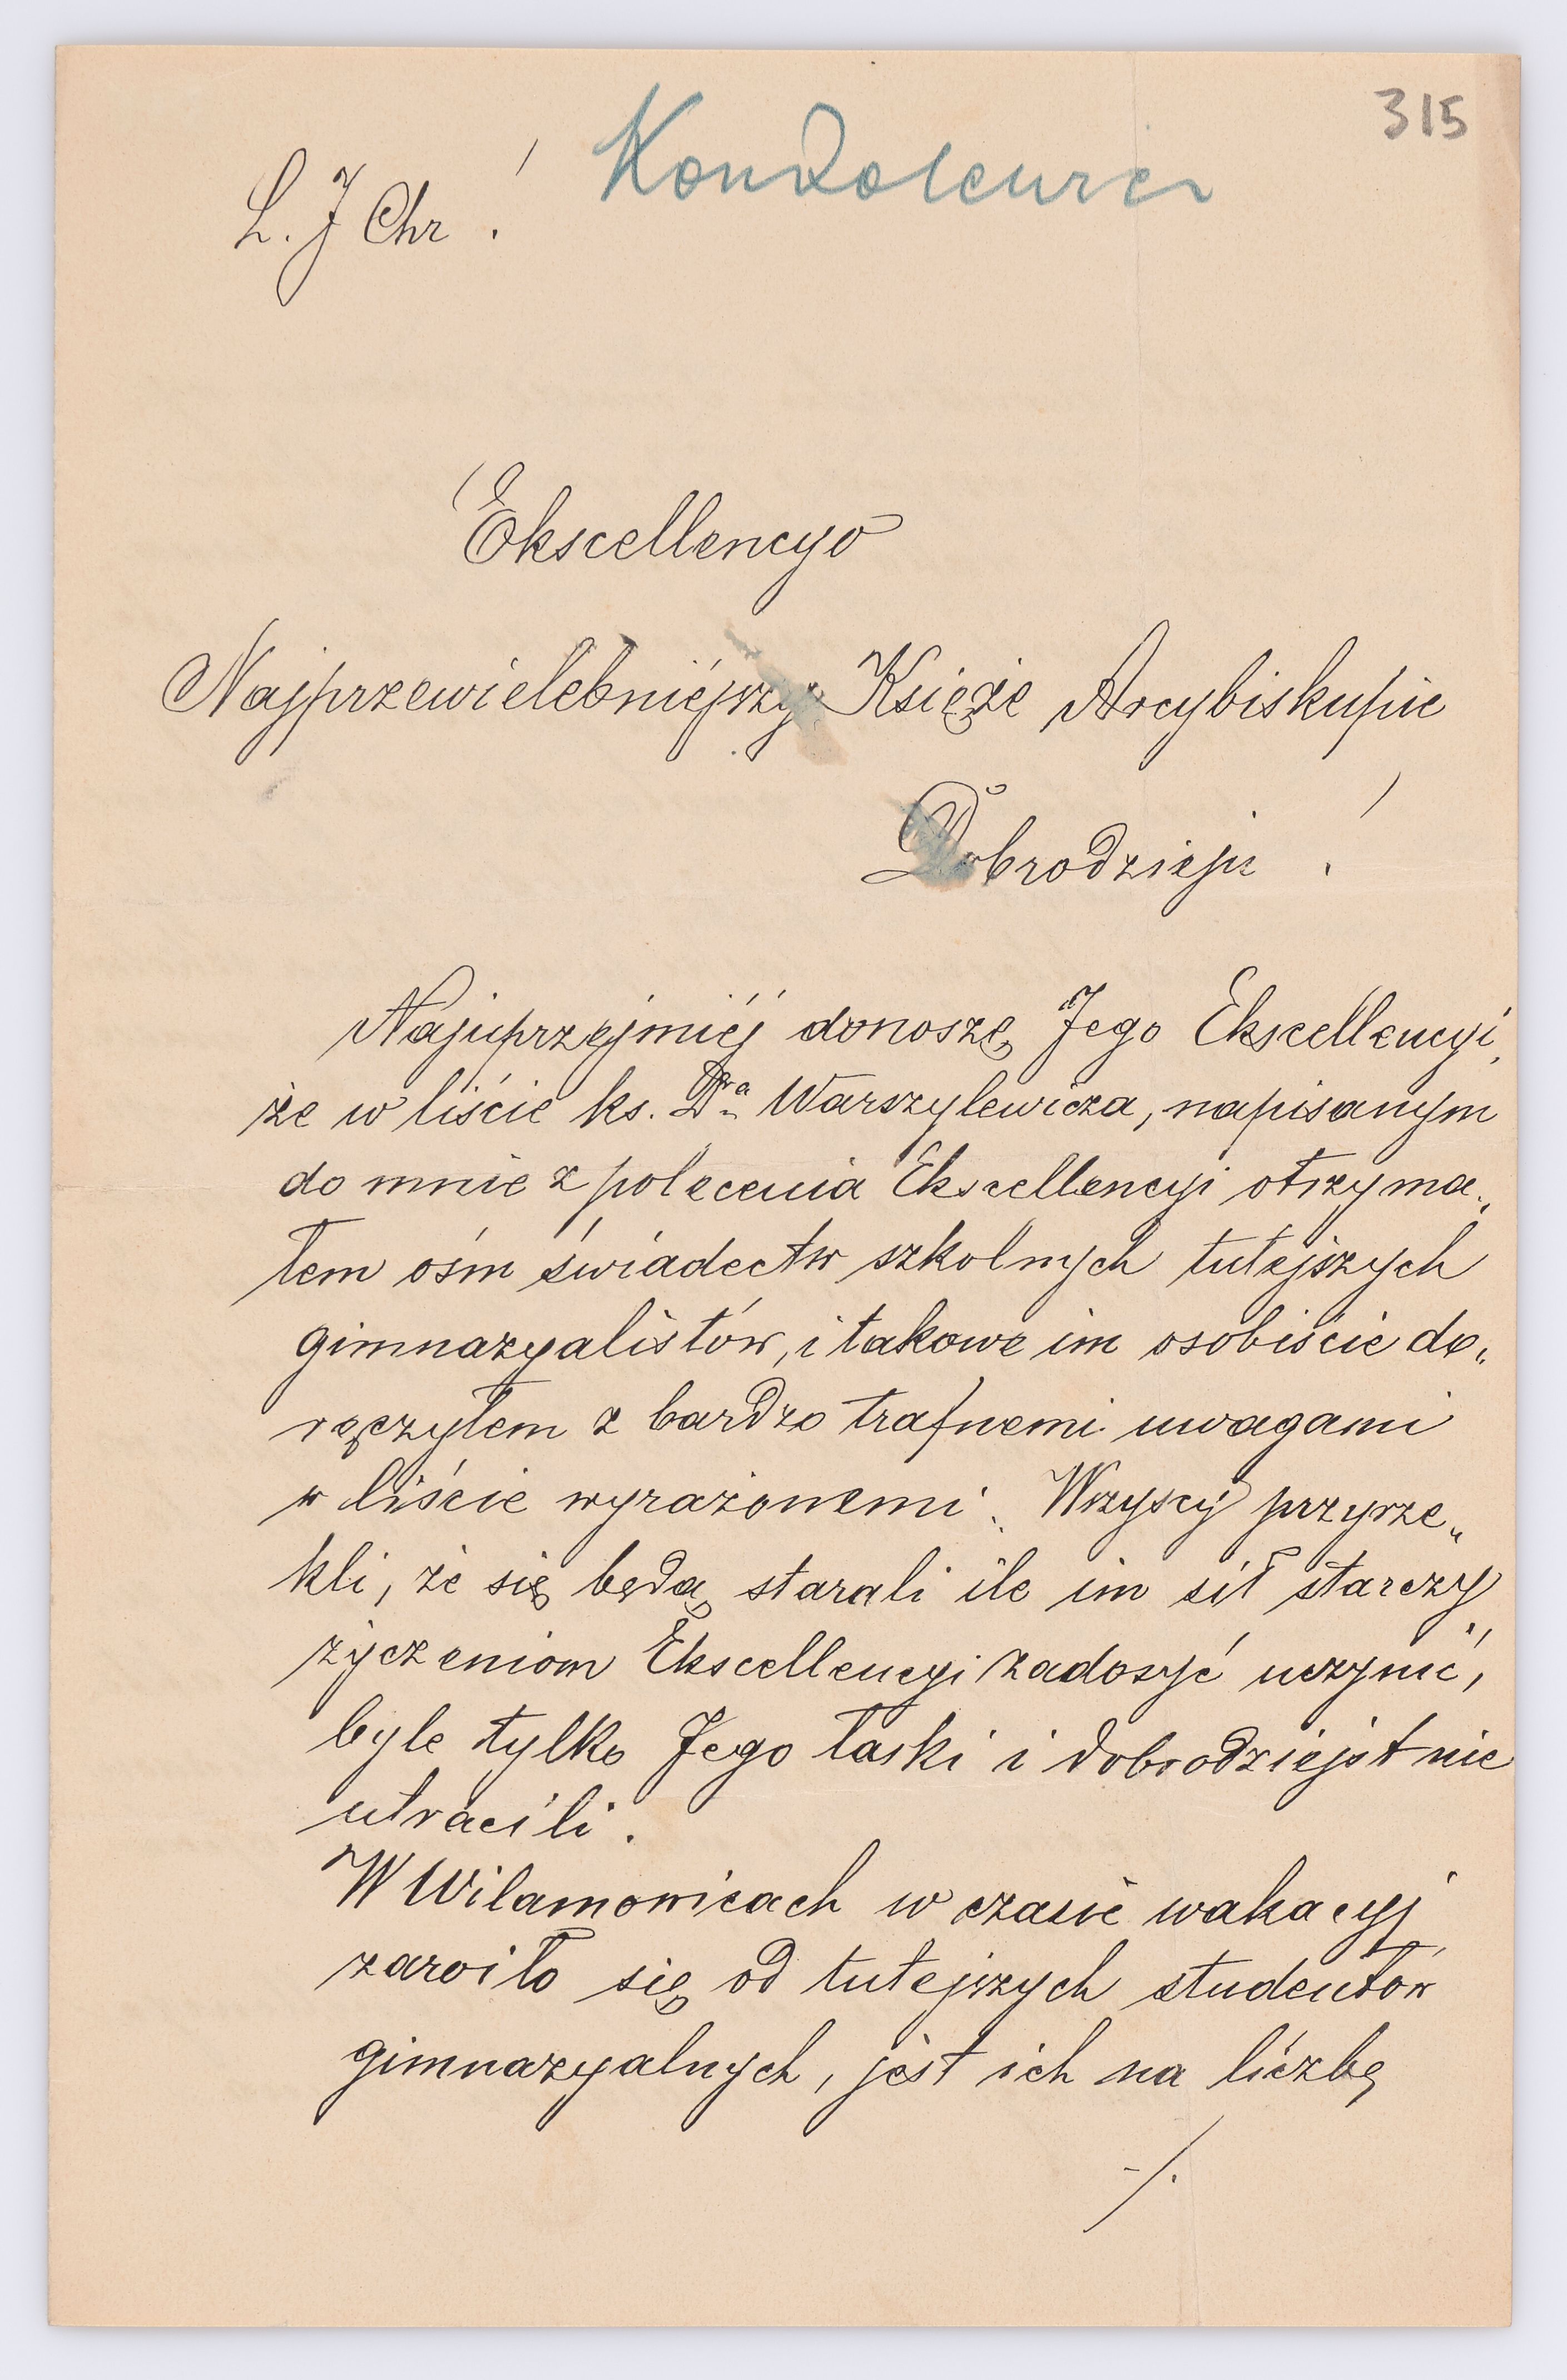 315
Kondolencya
L. J Chr !
Ekscellencyo
Najprzewielebniéjszy Księże Arcybiskupie
Dobrodzieju !
Najuprzejmiéj donoszę Jego Ekscellencyi,
że w liście ks. Dra Warszylewicza, napisanym
do mnie z polecenia Ekscellencyi otrzyma„
łem ośm świadectw szkolnych tutejszych
gimnazyalistów, i takowe im osobiście do„
ręczyłem z bardzo trafnemi uwagami
w liście wyrażonemi. Wszyscy przyrze„
kli, że się będą starali ile im sił starczy
życzeniom Ekscellencyi zadosyć uczynić,
byle tylko Jego łaski i dobrodziejst nie
utracili.
W Wilamowicach w czasie wakacyj
zaroiło się od tutejszych studentów
gimnazyalnych, jest ich na liczbę
-/.